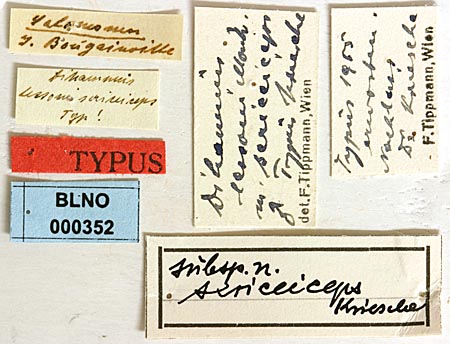 Salomonen
J. Bougainville
Dihammus
lessonii sericeiceps
Typ!
TYPUS
BLNO
000352
Dihammus
lessonii Montr.
m. sericeiceps
Typus Kriesche
det. F. Tippmann, Wien
Typus 1955
erworben.
Nachlass
Dr. Kriesche
F. Tippmann, Wien
subsp. n.
sericeiceps
Kriesche